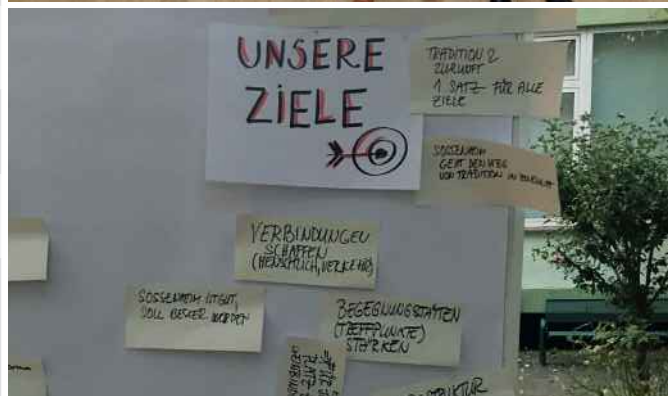 UNSERE
ZIELE
TRADITION 2
ZUKUNFT
1 SATZ FÜR ALLE
ZIELE
SOSSENHEIM
GEHT DEN WEG
VON TRADITION IN
VERBINDUNGEN
SCHAFFEN
(MENSCHLICH, VERKEHR)
SOSSENHEIM IST GUT,
SOLL BESSER WERDEN
BEGEGNUNGSSTÄTTEN
(TREFFPUNKTE)
STÄRKEN